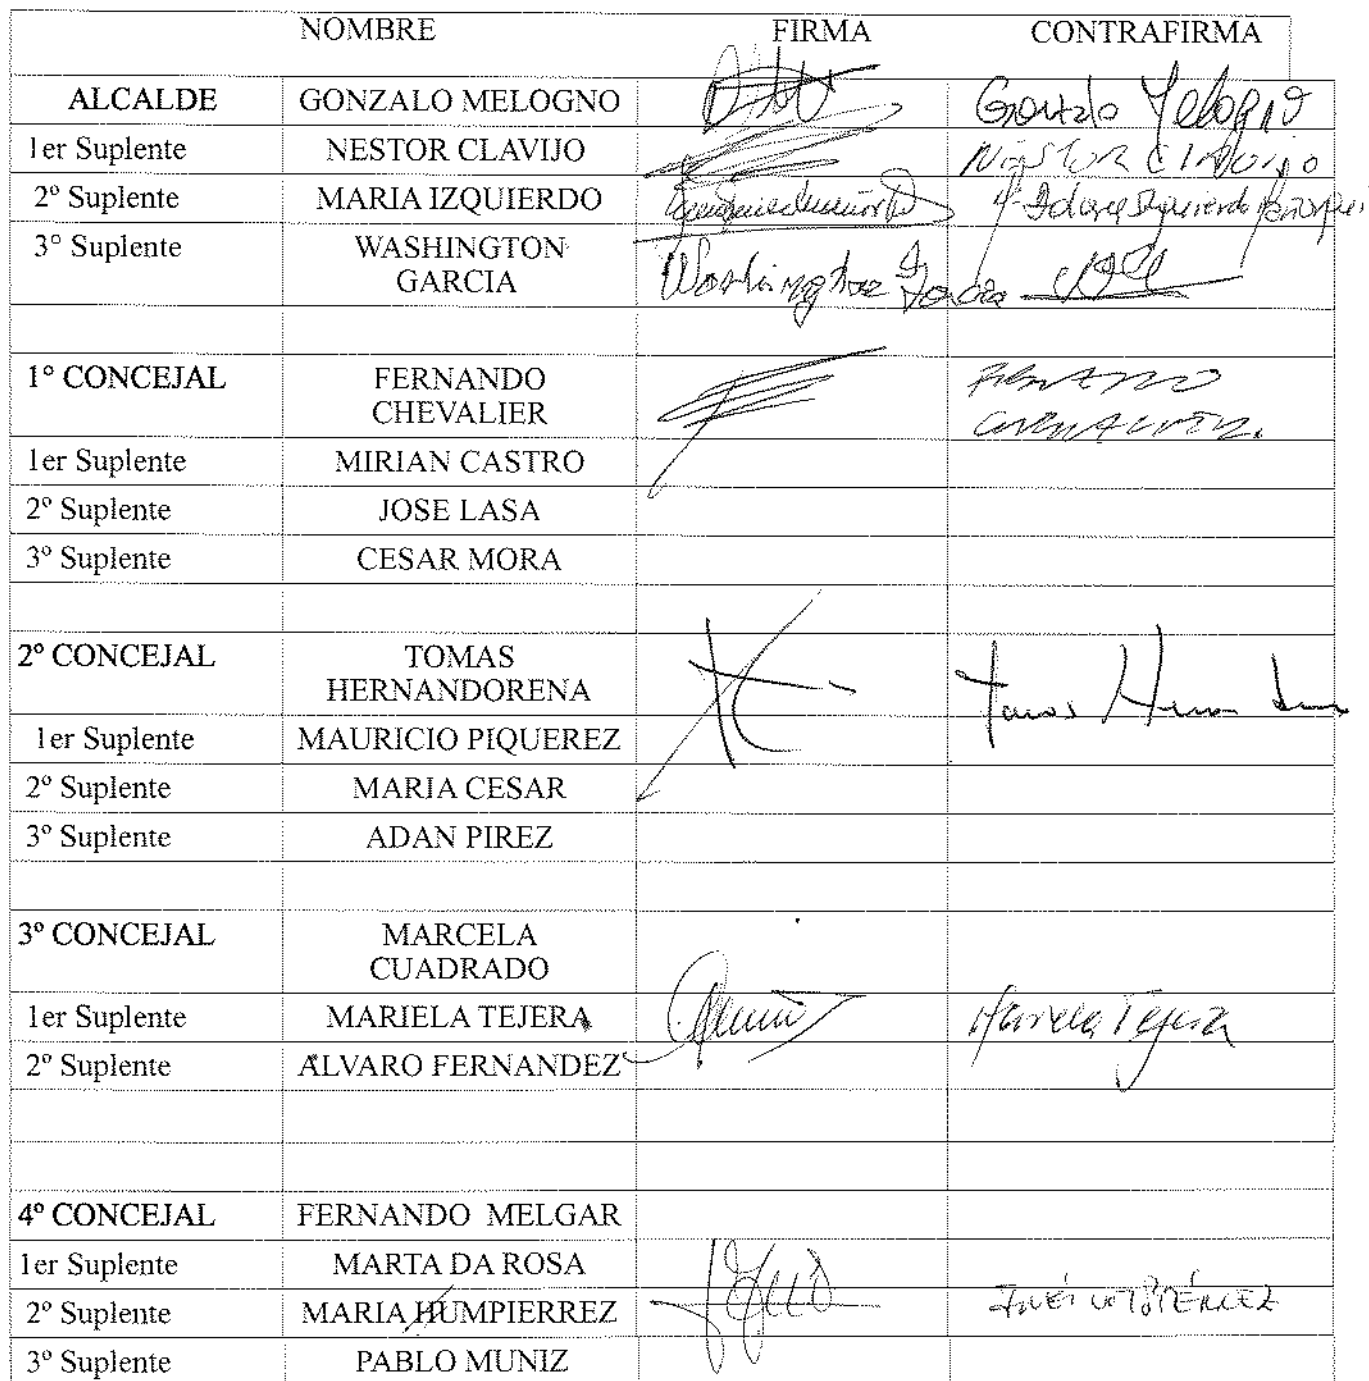 NOMBRE FIRMA CONTRAFIRMA
ALCALDE GONZALO MELOGNO Gonzalo Melogno
1er Suplente NESTOR CLAVIJO NESTOR CLAVIJO
2º Suplente MARIA IZQUIERDO Izquierdo
3° Suplente WASHINGTON
GARCIA Washington García
1º CONCEJAL FERNANDO FERNANDO
CHEVALIER
1er Suplente MIRIAN CASTRO
2º Suplente JOSE LASA
3º Suplente CESAR MORA
2º CONCEJAL TOMAS
HERNANDORENA Tomas
1er Suplente MAURICIO PIQUEREZ
2º Suplente MARIA CESAR
3º Suplente ADAN PIREZ
3º CONCEJAL MARCELA
CUADRADO
1er Suplente MARIELA TEJERA Mariela Tejera
2º Suplente ALVARO FERNANDEZ
4º CONCEJAL FERNANDO MELGAR
1er Suplente MARTA DA ROSA
2º Suplente MARIA HUMPIERREZ INÉS
3º Suplente PABLO MUNIZ